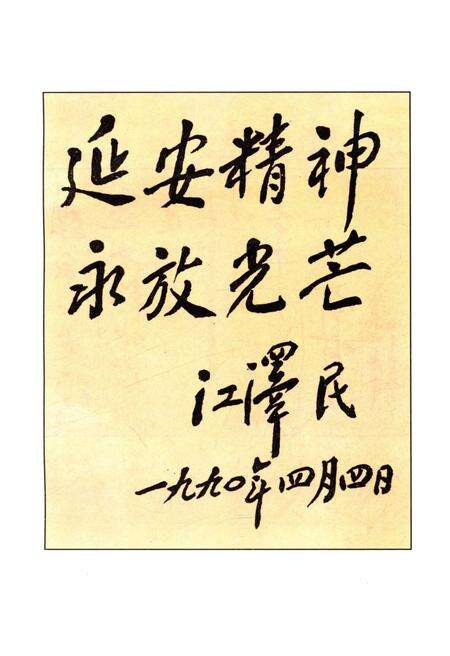 延安精神
永放光芒
江澤民
一九九〇年四月四日